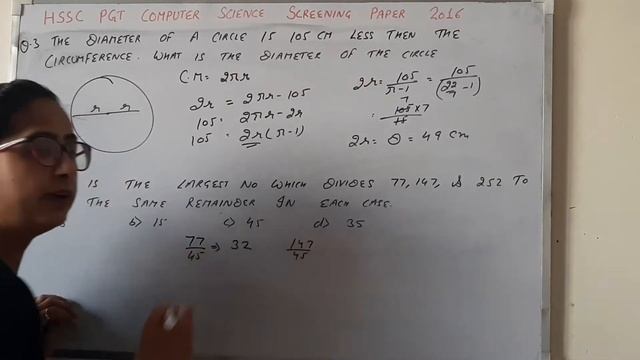 HSSC PGT COMPUTER SCIENCE SCREENING PAPER 2016
Q.3 THE DIAMETER OF A CIRCLE IS 105 CM LESS THEN THE
CIRCUMFERENCE. WHAT IS THE DIAMETER OF THE CIRCLE
r r
C.M = 2πr
2r = 2πr - 105
105 = 2πr - 2r
105 = 2r(π-1)
2r = 105/(π-1) = 105/(22/7 - 1)
= 105×7/15
7
2r = D = 49 cm
IS THE LARGEST NO WHICH DIVIDES 77, 147, & 252 TO
THE SAME REMAINDER IN EACH CASE.
b) 15 c) 45 d) 35
77/45 ⇒ 32 147/45